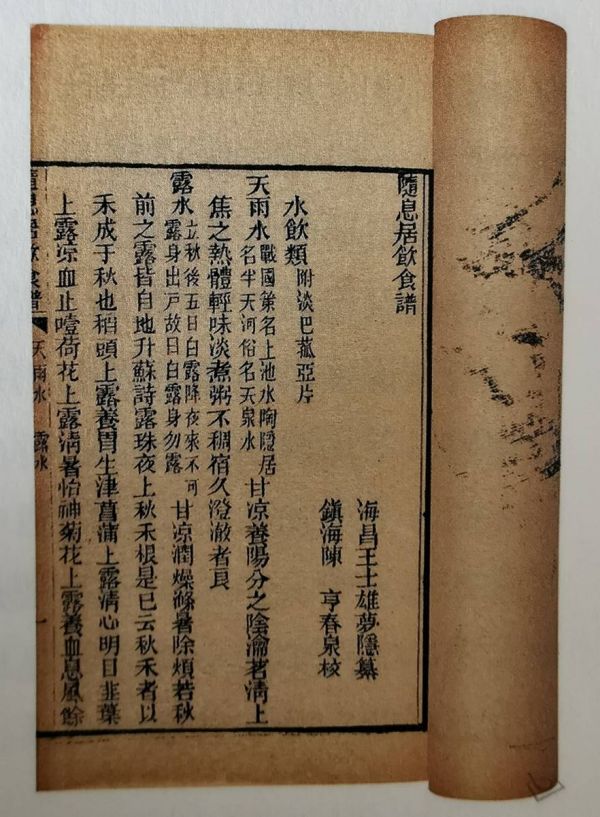 隨息居飲食譜
海昌王士雄夢隱纂
鎮海陳 亨春泉校
水飲類 附淡巴菰亞片
天雨水 戰國策名上池水陶隱居名半天河俗名天泉水 甘凉養陽分之陰瀹茗清上
焦之熱體輕味淡煮粥不稠宿久澄澈者良
露水 立秋後五日白露降夜來不可露身出戸故曰白露身勿露 甘凉潤燥滌暑除煩若秋
前之露皆自地升蘇詩露珠夜上秋禾根是已云秋禾者以
禾成于秋也稻頭上露養胃生津菖蒲上露清心明目韭葉
上露凉血止噎荷花上露清暑怡神菊花上露養血息風餘
隨息居飲食譜 天雨水 露水 一